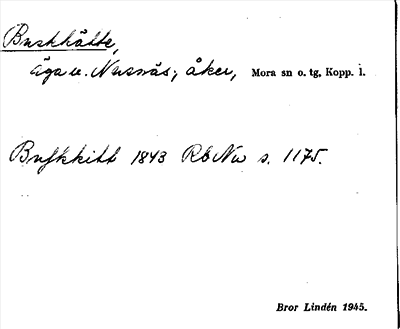 Buskhätte,
äga u. Nusnäs, åker, Mora sn o. tg, Kopp. l.
Bufkkitt 1843 RbNu s. 1175.
Bror Lindén 1945.